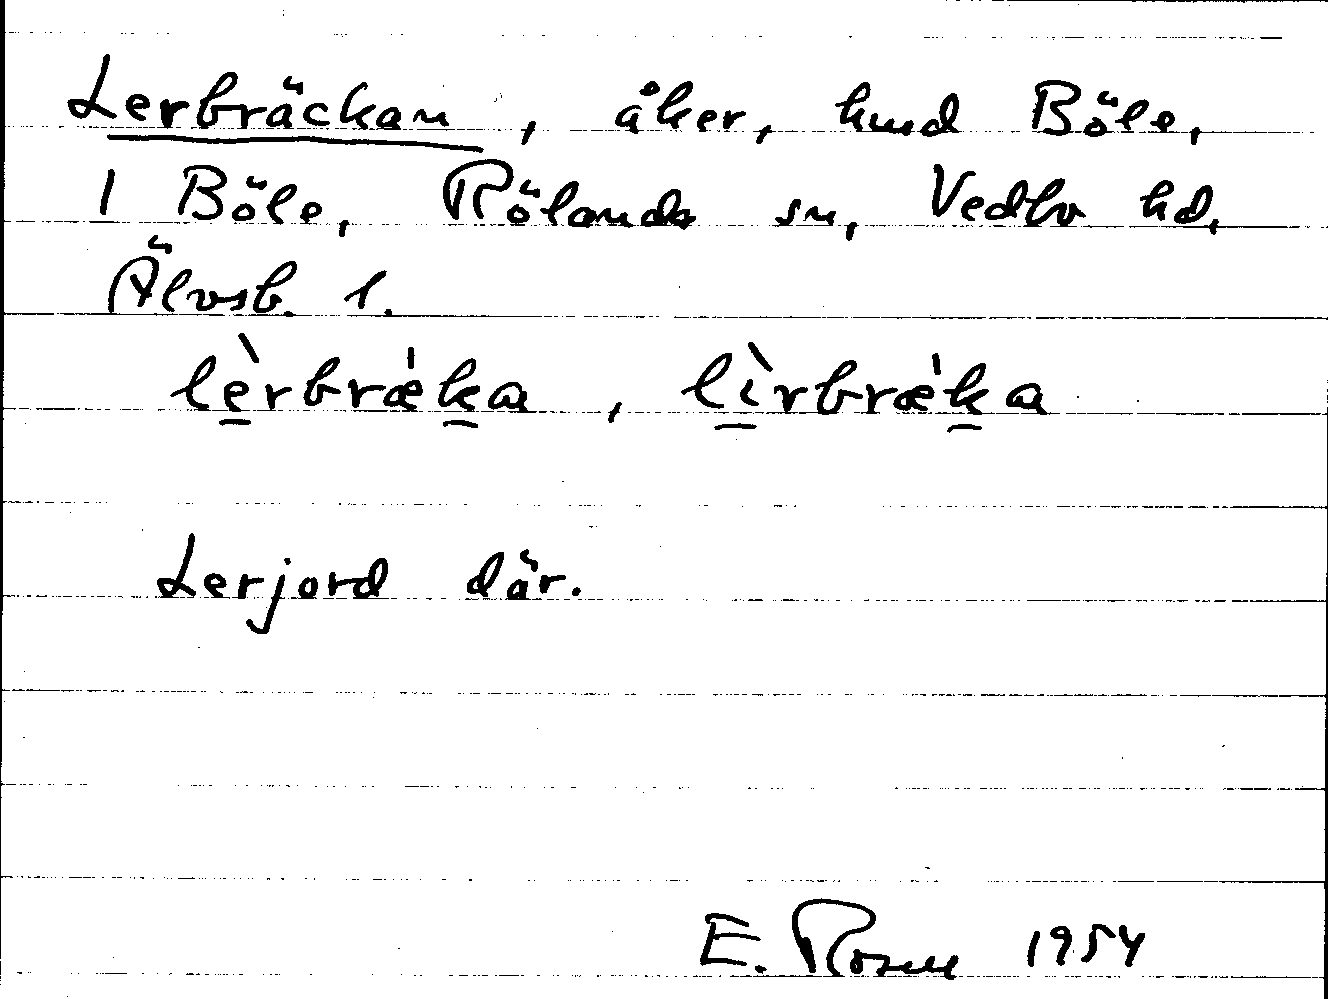 Lerbräckan, åker, hmd Böle,
1 Böle, Rölanda sn, Vedbo hd,
Älvsb. l.
lè̠rbrǽk̠a, lì̠rbrǽk̠a
Lerjord där.
E. Rosen 1954